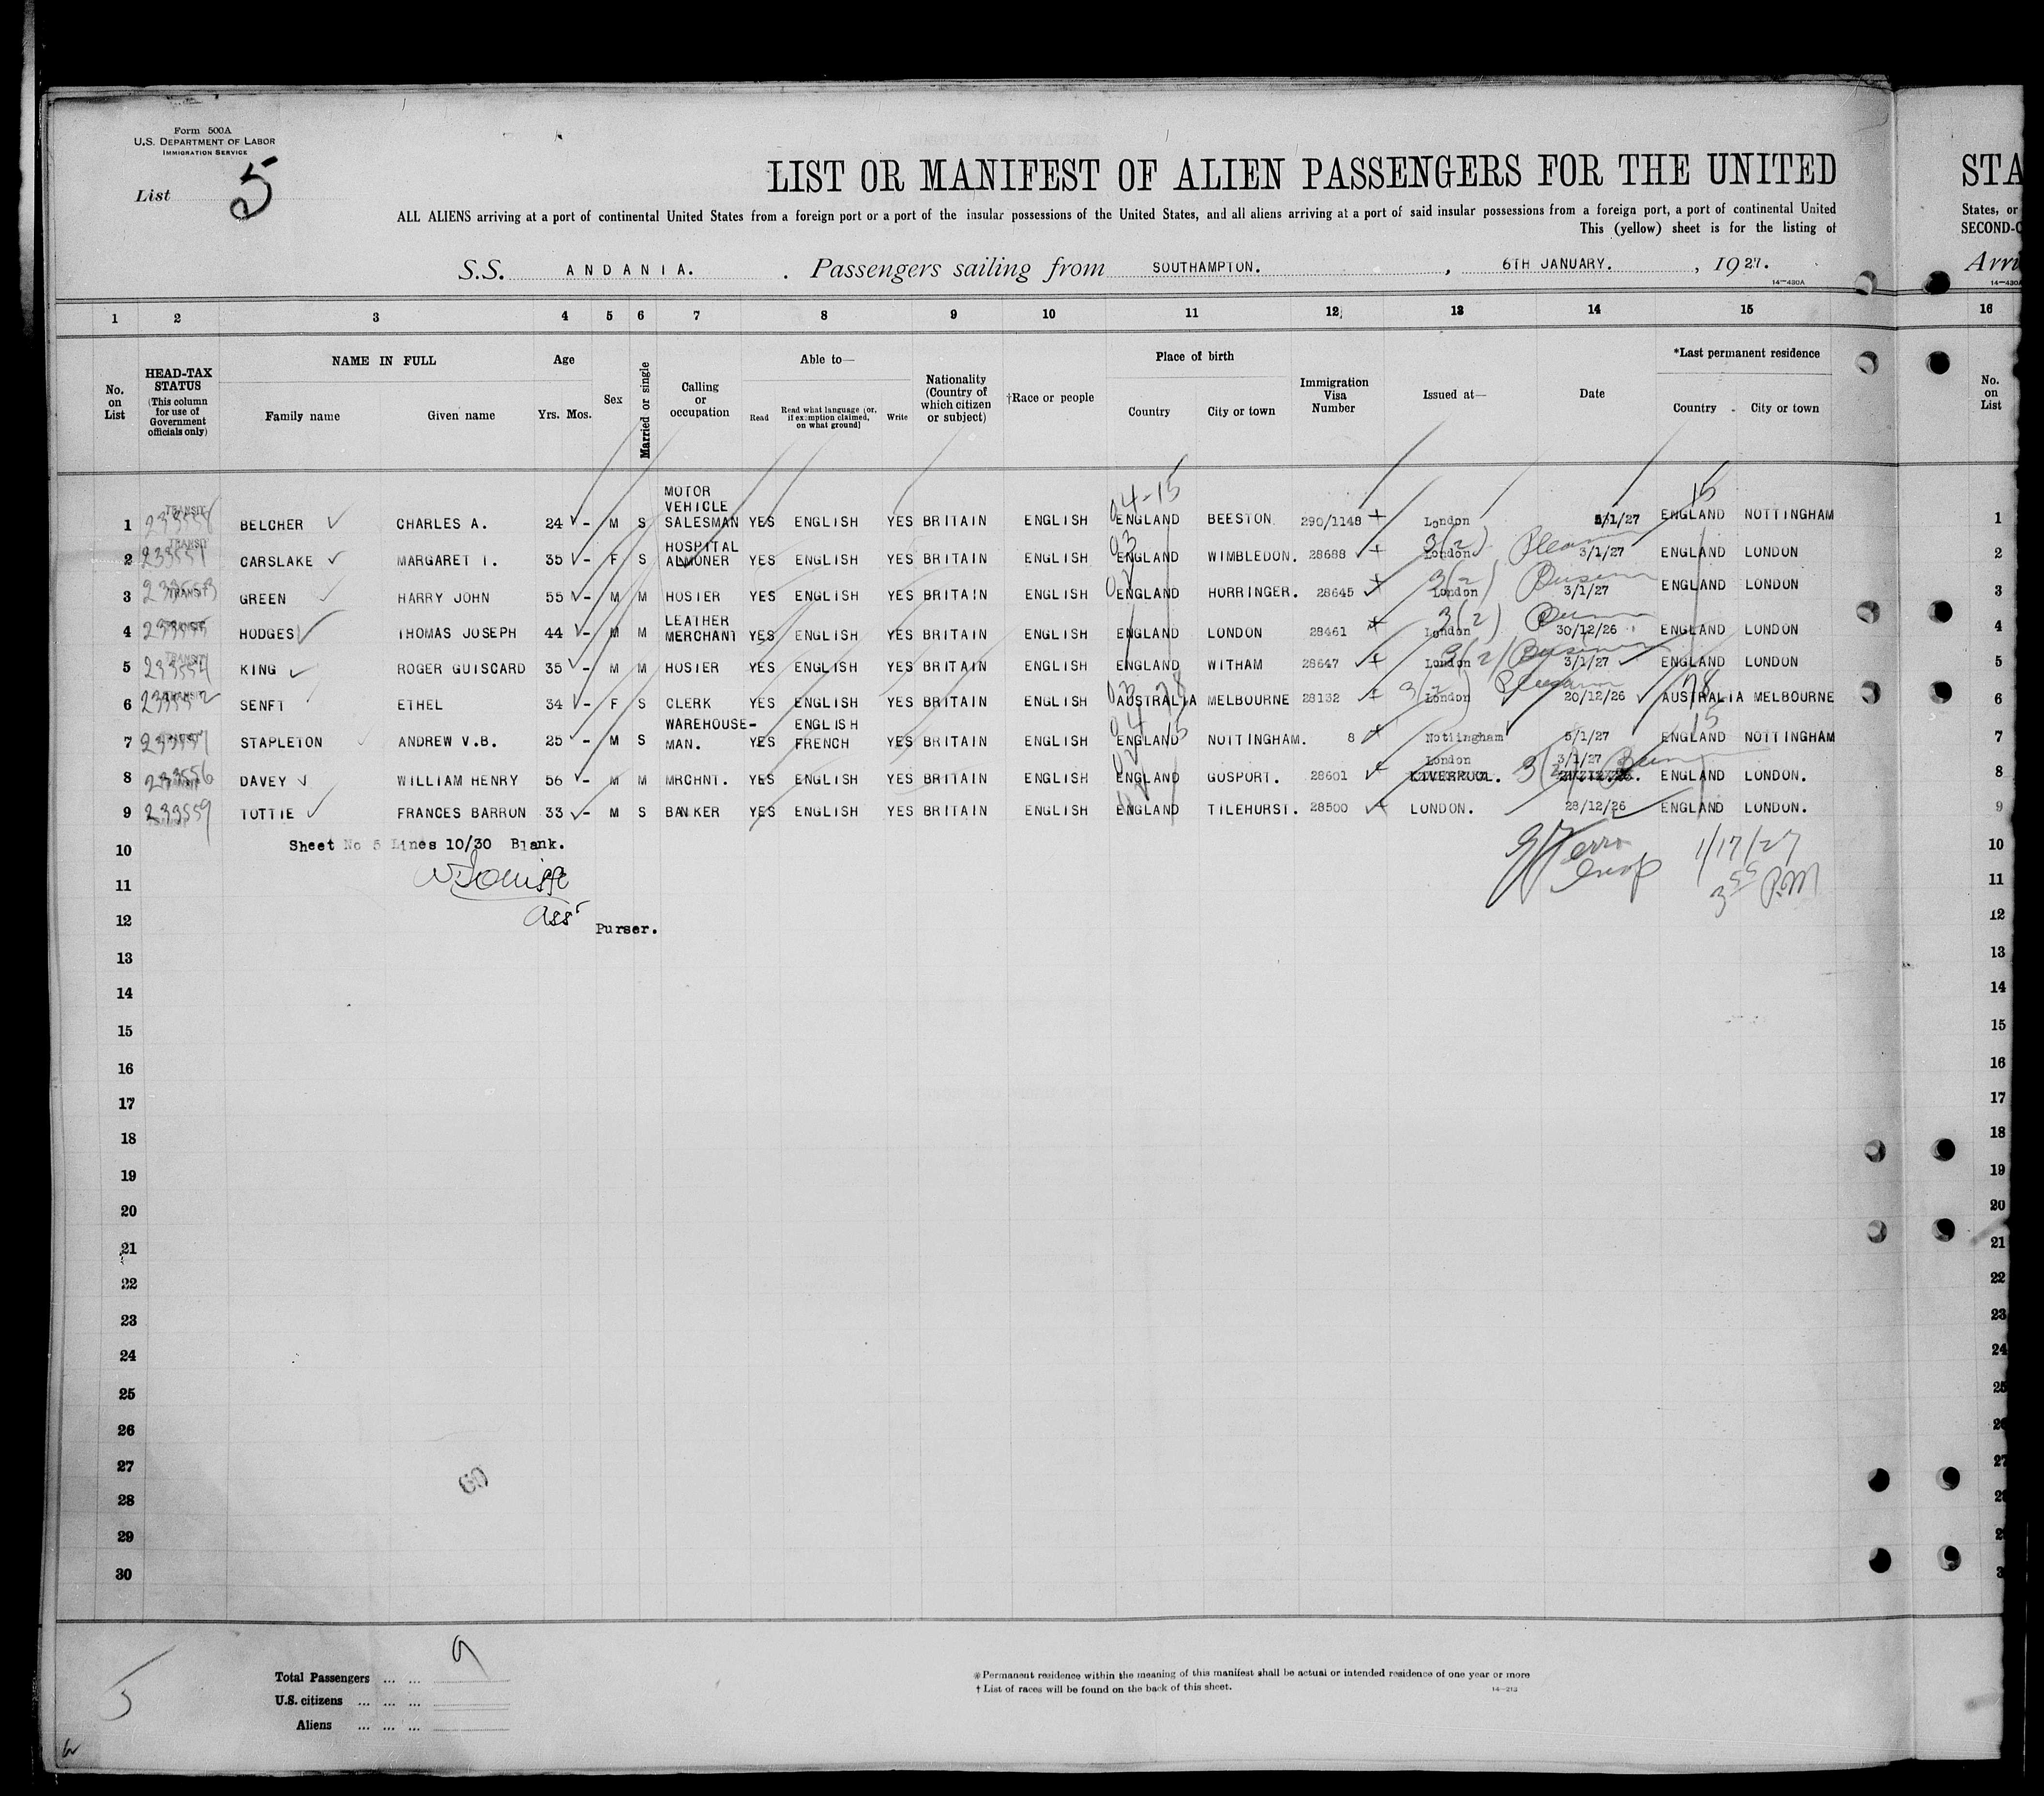 Form 500A
U.S. DEPARTMENT OF LABOR
IMMIGRATION SERVICE
List 5
LIST OR MANIFEST OF ALIEN PASSENGERS FOR THE UNITED
STA
ALL ALIENS arriving at a port of continental United States from a foreign port or a port of the insular possessions of the United States, and all aliens arriving at a port of said insular possessions from a foreign port, a port of continental United
States, or
This (yellow) sheet is for the listing of
SECOND-C
S.S. ANDANIA. . Passengers sailing from SOUTHAMPTON. , 6TH JANUARY. , 1927.
Arri
14—430A
14—430A
1 2 3 4 5 6 7 8 9 10 11 12 13 14 15 16
No. on List
HEAD-TAX STATUS (This column for use of Government officials only)
NAME IN FULL
Family name Given name
Age
Yrs. Mos.
Sex
Married or single
Calling or occupation
Able to—
Read Read what language (or, if exemption claimed, on what ground) Write
Nationality (Country of which citizen or subject)
†Race or people
Place of birth
Country City or town
Immigration Visa Number
Issued at—
Date
*Last permanent residence
Country City or town
No. on List
1 TRANSIT 233558 BELCHER CHARLES A. 24 - M S MOTOR VEHICLE SALESMAN YES ENGLISH YES BRITAIN ENGLISH 04-15 ENGLAND BEESTON 290/1148 London 5/1/27 15 ENGLAND NOTTINGHAM 1
2 TRANSIT CARSLAKE MARGARET I. 35 - F S HOSPITAL ALMONER YES ENGLISH YES BRITAIN ENGLISH 03 ENGLAND WIMBLEDON. 28688 3(2) London 3/1/27 ENGLAND LONDON 2
3 TRANSIT 233553 GREEN HARRY JOHN 55 - M M HOSIER YES ENGLISH YES BRITAIN ENGLISH ENGLAND HORRINGER. 28645 3(2) London 3/1/27 ENGLAND LONDON 3
4 233555 HODGES THOMAS JOSEPH 44 - M M LEATHER MERCHANT YES ENGLISH YES BRITAIN ENGLISH ENGLAND LONDON 28461 3(2) London 30/12/26 ENGLAND LONDON 4
5 TRANSIT 233554 KING ROGER GUISCARD 35 - M M HOSIER YES ENGLISH YES BRITAIN ENGLISH ENGLAND WITHAM 28647 3(2) Business London 3/1/27 ENGLAND LONDON 5
6 TRANSIT 233552 SENFT ETHEL 34 - F S CLERK YES ENGLISH YES BRITAIN ENGLISH 03 78 AUSTRALIA MELBOURNE 28132 3(2) London 20/12/26 78 AUSTRALIA MELBOURNE 6
7 233557 STAPLETON ANDREW V.B. 25 - M S WAREHOUSE-MAN. YES ENGLISH FRENCH YES BRITAIN ENGLISH 04 15 ENGLAND NOTTINGHAM. 8 Nottingham 5/1/27 15 ENGLAND NOTTINGHAM 7
8 233556 DAVEY WILLIAM HENRY 56 - M M MRCHNT. YES ENGLISH YES BRITAIN ENGLISH ENGLAND GOSPORT. 28601 London LIVERPOOL. 3(2) 3/1/27 ENGLAND LONDON. 8
9 233559 TOTTIE FRANCES BARRON 33 - M S BANKER YES ENGLISH YES BRITAIN ENGLISH ENGLAND TILEHURST. 28500 LONDON. 28/12/26 ENGLAND LONDON. 9
10 Sheet No 5 Lines 10/30 Blank. 1/17/27 10
11 Insp 3 55 PM 11
12 Asst Purser. 12
13 13
14 14
15 15
16 16
17 17
18 18
19 19
20 20
21 21
22 22
23 23
24 24
25 25
26 26
27 27
28
29
30
60
5
Total Passengers ... ... 9
U.S. citizens ... ... ...
Aliens ... ... ...
*Permanent residence within the meaning of this manifest shall be actual or intended residence of one year or more
†List of races will be found on the back of this sheet.
14—213